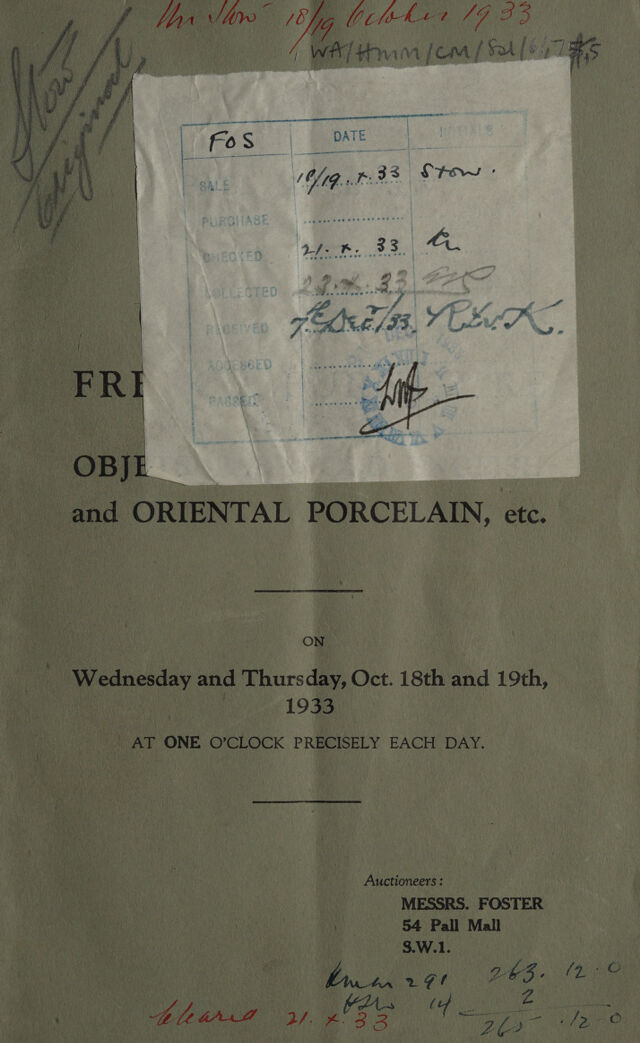 Mr Stow 18/19 October 1933
WA/HMM/CM/Sal/6/17
Stow
Original
FOS DATE INITIALS
SALE 18/19.x.33 Stow.
PURCHASE
CHECKED 21.x.33
COLLECTED 23.x.33
RECEIVED 7th Decr/33. R.v.K.
ACCESSED
PASSED
FRE
OBJE
and ORIENTAL PORCELAIN, etc.
ON
Wednesday and Thursday, Oct. 18th and 19th,
1933
AT ONE O'CLOCK PRECISELY EACH DAY.
Auctioneers:
MESSRS. FOSTER
54 Pall Mall
S.W.1.
291 263.12.0
14 2
Cleared 21.x.33 265.12.0